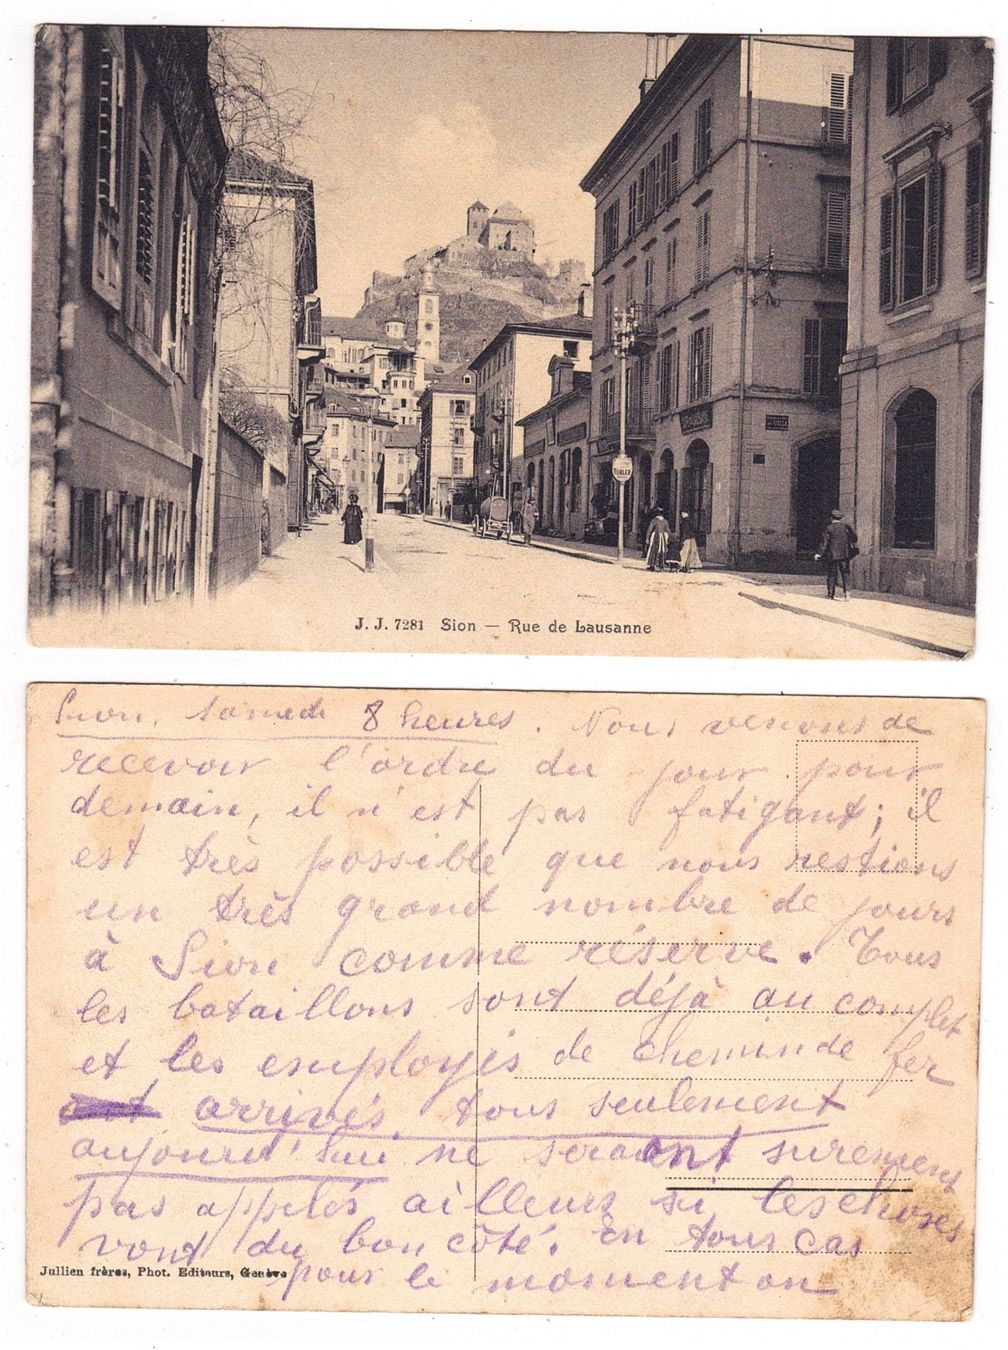 TOBLER
J. J. 7281 Sion — Rue de Lausanne
Sion, Samedi 8 heures. Nous venons de
recevoir l'ordre du jour pour
demain, il n'est pas fatigant; il
est très possible que nous restions
un très grand nombre de jours
à Sion comme réserve. Tous
les bataillons sont déjà au complet
et les employés de chemin de fer
arrivés tous seulement
aujourd'hui ne seront surement
pas appelés ailleurs si les choses
vont du bon côté. En tous cas
pour le moment on
Jullien frères, Phot. Editeurs, Genève